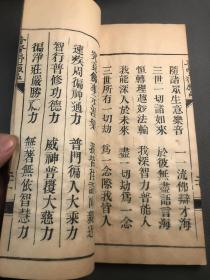 隨諸眾生意樂音　一一流佛辯才海
三世一切諸如來　於彼無盡語言海
恒轉理趣妙法輪　我深智力普能入
我能深入於未來　盡一切劫為一念
三世所有一切劫　為一念際我皆入
速疾周徧神通力　普門徧入大乘力
智行普修功德力　威神普覆大慈力
徧淨莊嚴勝福力　無著無依智慧力